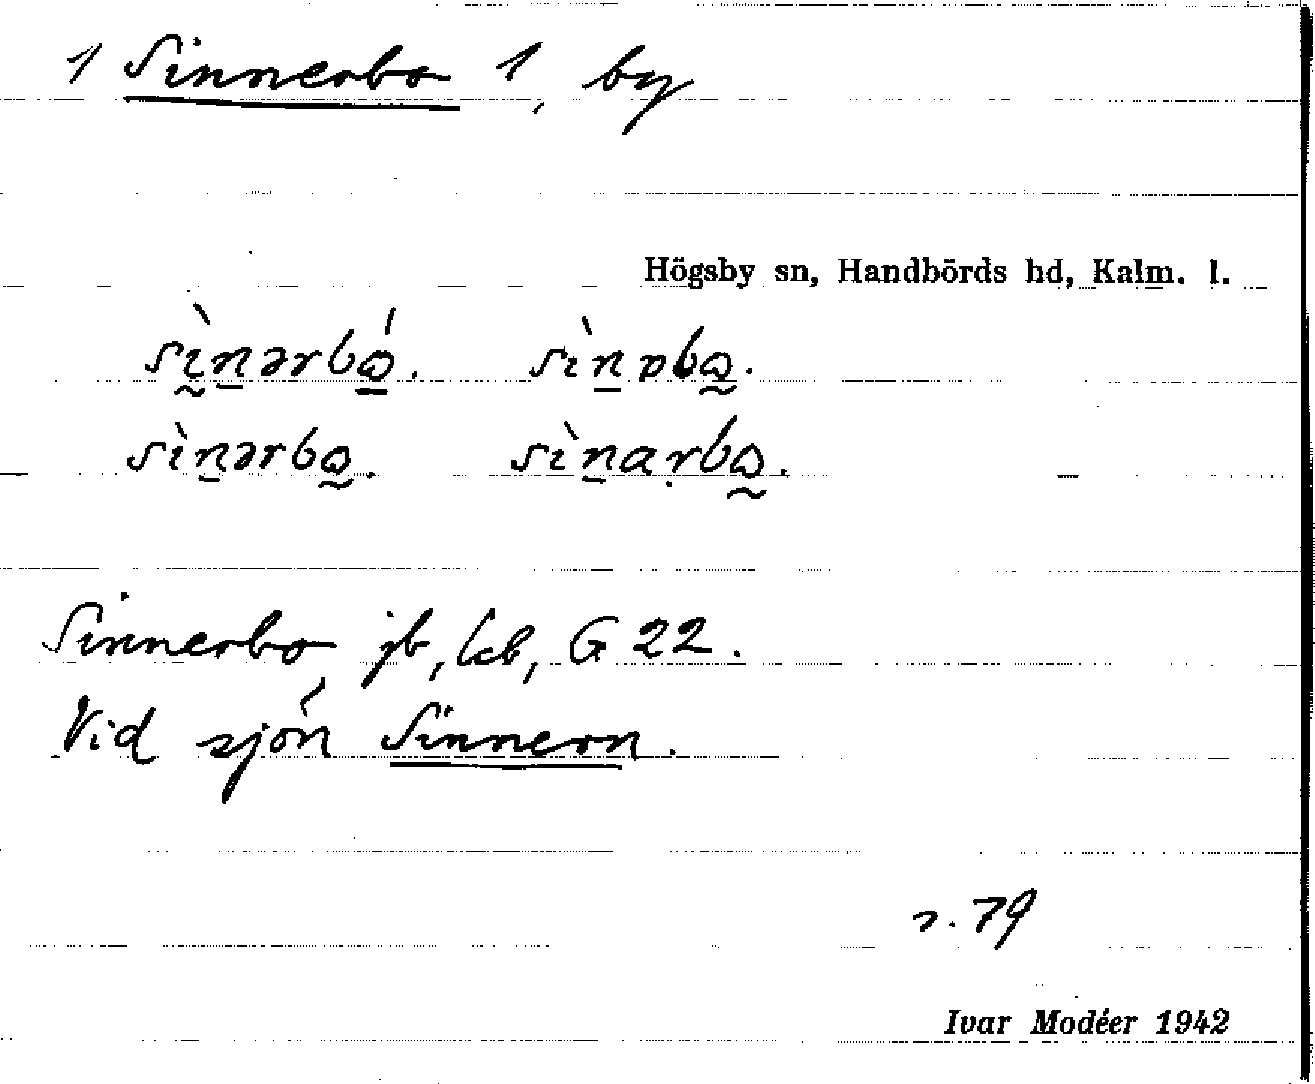 1 Sinnerbo 1, by
Högsby sn, Handbörds hd, Kalm. l.
sìn̲ərbꝏ́. sìn̲ɒbꝏ.
sìn̲ərbꝏ. sìn̲aṛbꝏ.
Sinnerbo jb, kb, G 22.
Vid sjön Sinnern.
s. 79
Ivar Modéer 1942